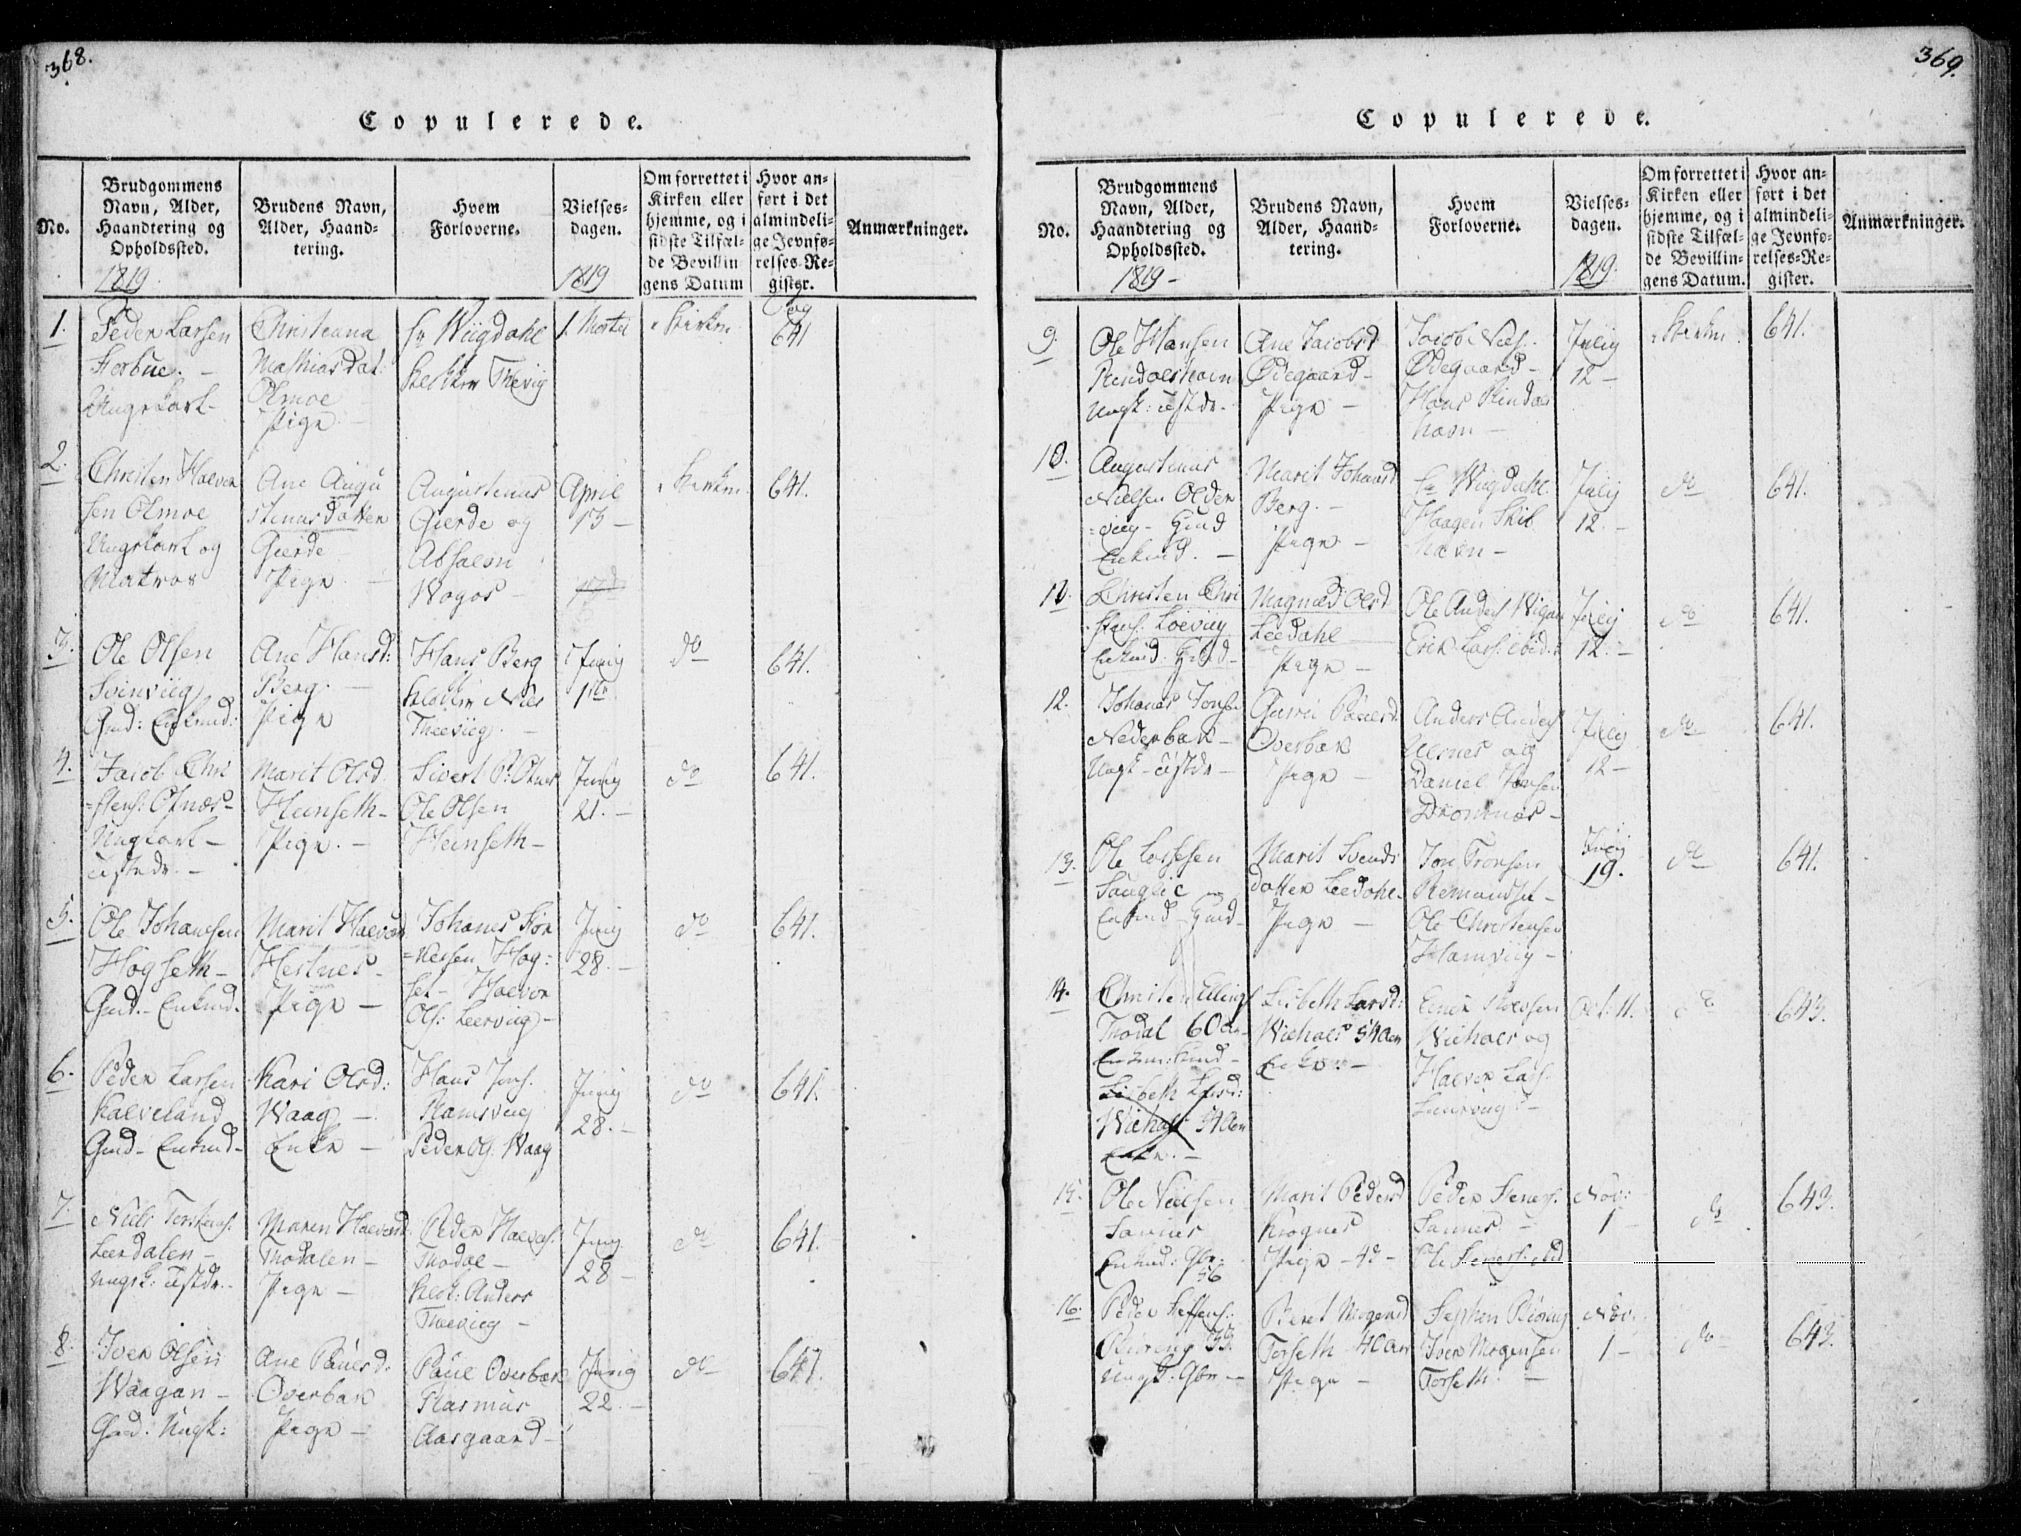 368.
Copulerede.
No.
Brudgommens
Navn, Alder,
Haandtering og
Opholdssted.
1819.
Brudens Navn,
Alder, Haand-
tering.
Hvem
Forloverne.
Vielses-
dagen.
1819
Om forrettet i
Kirken eller
hjemme, og i
sidste Tilfæl-
de Bevillin
gens Datum
Hvor an-
ført i det
almindeli-
ge Jevnfø-
relses-Re-
gister.
Anmærkninger.
1.
Peder Larsen
Ungkarl-
Christiana
Mathiasdat:
Olmoe
Pige -
Hr Wiigdahl
1. Martii
i Kirken
Pag
641
2.
Christen Halvor
sen Olmoe
Ungkarl og
Matros
Ane Augu
stinusdatter
Gierde -
Pige. -
Augustinus
Gierde og
Absalon
Wogos -
April
13 -
i Kirken
641.
3.
Ole Olsen
Svinviig
Gmd: Enkmd:
Ane Hansd:
Berg. -
Pige
Hans Berg
Klokker Niels
Theeviig. -
Junij
1ste
do
641.
4.
Jacob Chri
=stens: Ofnæs-
Ungkarl -
Marit Olsd.
Heinseth-
Pige. -
Sivert P: Ofnes
Ole Olsen
Heinseth -
Junij
21. -
do
641.
5.
Ole Johansen
Hogseth -
Gmd.- Enkmd.
Marit Halvors
Hestnes -
Pige -
Johanes Tør
=kessen Hog:
set - Halvor
Ols: Leerviig -
Junij
28. -
do
641.
6.
Peder Larsen
Kalveland
Gmd- Enkmd-
Kari Olsd:
Waag -
Enke -
Hans Jons.
Hamsviig
Peder Og. Waag
Junij
28. -
do
641.
7.
Niels Torstens.
Leerdalen -
Ungk: Astdr.-
Maren Halvorsd.
Thodalen -
Pige -
Peder Halvors.
Thodal -
Klok: Anders
Theeviig -
Junij
28 -
do
641.
8.
Iver Olsen
Waagan -
Gmd: Ungk:
Ane Paulsd:
Overbak
Pige -
Paul Overbak
Rasmus
Aasgaard -
Junij
22. -
do
641.
369.
Copulerede.
No.
Brudgommens
Navn, Alder,
Haandtering og
Opholdssted.
1819-
Brudens Navn,
Alder, Haand-
tering.
Hvem
Forloverne.
Vielses-
dagen.
1819.
Om forrettet i
Kirken eller
hjemme, og i
sidste Tilfæl-
de Bevillin-
gens Datum.
Hvor an-
ført i det
almindeli-
ge Jevnfø-
relses-Re-
gister.
Anmærkninger.
9.
Ole Hansen
Rindalshavn
Ungk: Astdr-
Ane Jacobsd
Ødegaard -
Pige -
Jacob Niels:
Ødegaard -
Hans Rindals
havn -
Julij
12 -
i Kirken
641.
10.
Augustinus
Nielsen Older
=viig - Gmd
Enkmd. -
Marit Johansd
Berg. -
Pige -
Hr Wiigdahl.
Haagen Skib
næsn -
Julij
12. -
do
641.
10.
Christen Chri
stens: Loeviig
Enkmd: Gmd-
Magnild Olsd
Leedahl -
Pige -
Ole Anders Wigan
Erik Lars:
Julij
12. -
do
641.
12.
Johanes Jonsen
Nederbak -
Ungk - Astdr -
Guru Paulsd
Overbak
Pige -
Anders Anders
Ulsnes og
Daniel Hansen
Dromnæs -
Julij
12 -
do
641.
13.
Ole Lassesen
Sauglie
Enkmd - Gmd -
Marit Svends
datter Leedahl.
Pige -
Jon Tronsen
Romundset -
Ole Christensen
Hamviig -
Julij
19.
do
641.
14.
Christen Ellings
Thodal 60 aar
Enkm: Gmd -
Lisbeth Larsd:
Wiehals 54 aar
Enke. -
Lisbeth Larsd:
Wiehals 54 aar
Enke -
Einer
Wiehals og
Halvor Lars.
Leerviig -
Oct: 11.
do
643.
15.
Ole Nielsen
Sannes
Enkmd: Gbr-
56
Marit Pedersd
Krognes
Pige - 42 -
Peder Stenes:
Sannes -
Nov:
1 -
do
643.
16.
Peder Steffens:
Rüring 33.
Ungk: Gbr -
Beret Mogensd
Torseth - 40 aar
Pige -
Stephen Rüring
Iver Mogensen
Torseth: -
Nov:
1 -
do
643.